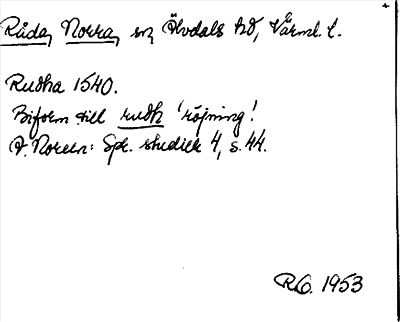 Råda, Norra, sn, Älvdals hd, Värml. l.
Rudha 1540.
Biform till rudh 'röjning'.
A. Noreen: Spr. studier 4, s. 44.
RO. 1953